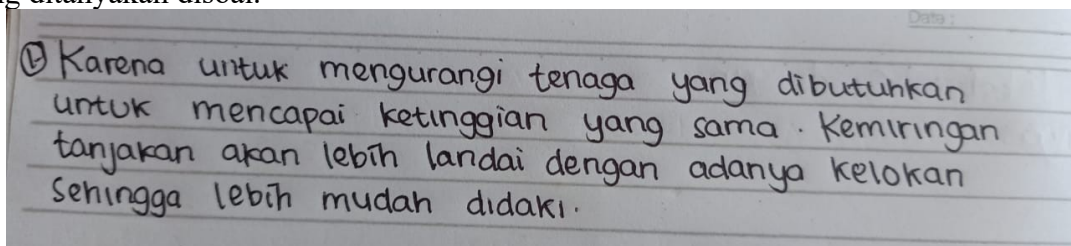 Data :
① Karena untuk mengurangi tenaga yang dibutuhkan
untuk mencapai ketinggian yang sama. Kemiringan
tanjakan akan lebih landai dengan adanya kelokan
sehingga lebih mudah didaki.